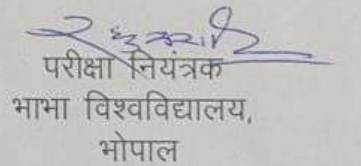 परीक्षा नियंत्रक
भाभा विश्वविद्यालय,
भोपाल